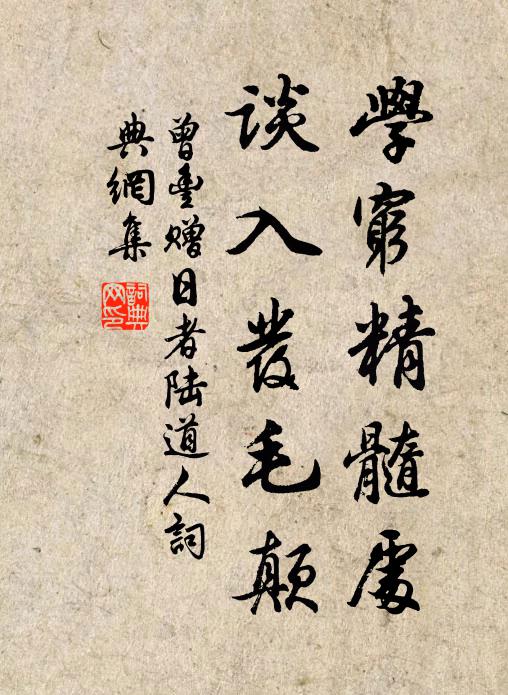 學窮精髓處
談入發毛顛
曾豐贈日者陸道人詞
典網集
詞典
网印